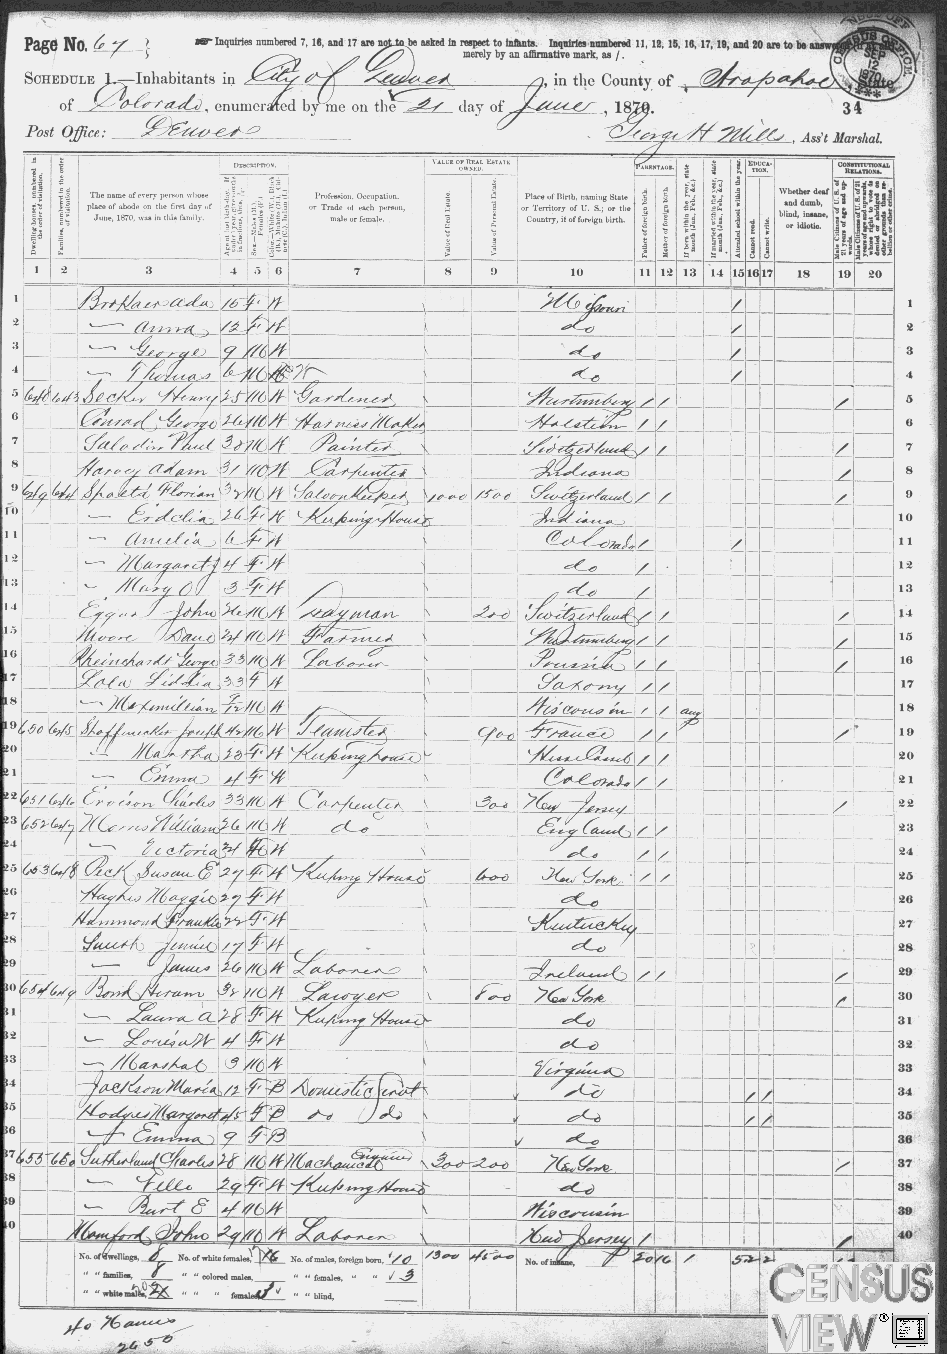 Page No. 67
Inquiries numbered 7, 16, and 17 are not to be asked in respect to infants. Inquiries numbered 11, 12, 15, 16, 17, 19, and 20 are to be answered
merely by an affirmative mark, as /.
CENSUS OFFICE SEP 12 1870
SCHEDULE 1.—Inhabitants in City of Denver, in the County of Arapahoe, State
of Colorado, enumerated by me on the 21 day of June, 1870. 34
Post Office: Denver George H Mills, Ass't Marshal.
DESCRIPTION. VALUE OF REAL ESTATE OWNED. PARENTAGE. EDUCATION. CONSTITUTIONAL RELATIONS.
Dwelling-houses, numbered in the order of visitation.
Families, numbered in the order of visitation.
The name of every person whose place of abode on the first day of June, 1870, was in this family.
Profession, Occupation, or Trade of each person, male or female.
Value of Real Estate.
Value of Personal Estate.
Place of Birth, naming State or Territory of U. S.; or the Country, if of foreign birth.
Father of foreign birth.
Mother of foreign birth.
Attended school within the year.
Cannot read.
Cannot write.
Whether deaf and dumb, blind, insane, or idiotic.
1 2 3 4 5 6 7 8 9 10 11 12 13 14 15 16 17 18 19 20
1 Ada 15 F W Missouri / 1
2 — Anna 12 F W do / 2
3 — George 9 M W do / 3
4 — Thomas 6 M W do / 4
5 648 643 Secker Henry 25 M W Gardener Wurtumberg / / / 5
6 Conrad George 26 M W Harniss Maker Holstien / / 6
7 Saladin Paul 38 M W Painter Switzerland / / / 7
8 Harvey Adam 31 M W Carpenter Indiana / 8
9 649 644 Spaeta Florian 32 M W Saloon Keeper 1000 1500 Switzerland / / / 9
10 — 26 F W Keeping House Indiana 10
11 — Amelia 6 F W Colorado / / 11
12 — Margaret J 4 F W do / 12
13 — Mary O 3 F W do / 13
14 Eggar John 26 M W Drayman 200 Switzerland / / / 14
15 Moore Dave 24 M W Farmer Wurtumberg / / / 15
16 Rheinhardt George 33 M W Laborer Prussia / / / 16
17 Liddia 33 F W Saxony / / 17
18 — Maximillian 9/12 M W Wisconsin / / Aug 18
19 650 645 Shoffmaker Joseph 42 M W Teamster 900 France / / / 19
20 — Martha 23 F W Keeping house / / 20
21 — Emma 4 F W Colorado / / 21
22 651 646 Ervison Charles 33 M W Carpenter 300 New Jersey / 22
23 652 647 Morris William 26 M W do England / / 23
24 — Victoria 24 F W do / / 24
25 653 648 Peck Susan E 27 F W Keeping House 600 New York / / 25
26 Hughes Maggie 29 F W do 26
27 Hammond Frankie 22 F W Kentucky 27
28 Smith Jennie 17 F W do 28
29 — James 26 M W Laborer Ireland / / / 29
30 654 649 Bond Hiram 32 M W Lawyer 800 New York / 30
31 — Laura A 28 F W Keeping House do 31
32 — Louisa W 4 F W do 32
33 — Marshal 3 M W Virginia 33
34 Jackson Maria 12 F B Domestic Servt do / / 34
35 Hodges Margaret 45 F B do do do / / 35
36 — Emma 9 F B do 36
37 655 650 Sutherland Charles 28 M W Mechanical Engineer 300 200 New York / 37
38 — 29 F W Keeping House do 38
39 — Burt E 4 M W Wisconsin 39
40 Momford John 29 M W Laborer New Jersey / / 40
No. of dwellings, 8 No. of white females, 16 No. of males, foreign born, 10 1300 4500 No. of insane, 20 16 1 5 2 2
" " families, 8 " " colored males, " " females, " " 3
" " white males, " " " females, 3 " " blind,
40 Names
2650
CENSUS
VIEW